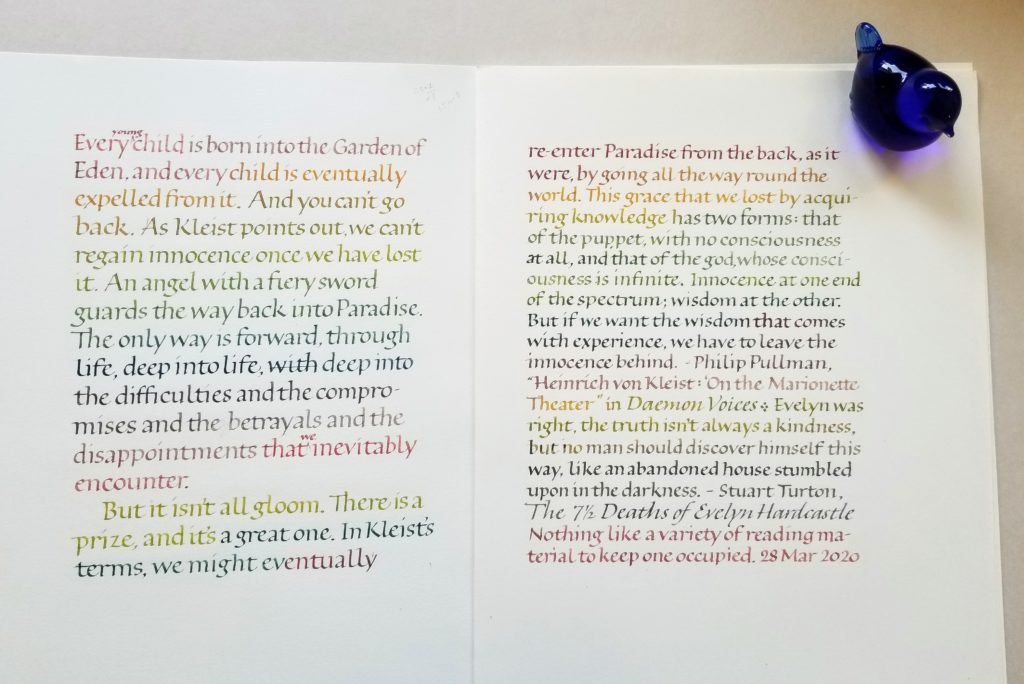 Every young child is born into the Garden of
Eden, and every child is eventually
expelled from it. And you can't go
back. As Kleist points out, we can't
regain innocence once we have lost
it. An angel with a fiery sword
guards the way back into Paradise.
The only way is forward, through
life, deep into life, with deep into
the difficulties and the compro-
mises and the betrayals and the
disappointments that we inevitably
encounter.
But it isn't all gloom. There is a
prize, and it's a great one. In Kleist's
terms, we might eventually
re-enter Paradise from the back, as it
were, by going all the way round the
world. This grace that we lost by acqui-
ring knowledge has two forms: that
of the puppet, with no consciousness
at all, and that of the god, whose consci-
ousness is infinite. Innocence at one end
of the spectrum; wisdom at the other.
But if we want the wisdom that comes
with experience, we have to leave the
innocence behind. - Philip Pullman,
"Heinrich von Kleist: 'On the Marionette
Theater" in Daemon Voices ❖ Evelyn was
right, the truth isn't always a kindness,
but no man should discover himself this
way, like an abandoned house stumbled
upon in the darkness. - Stuart Turton,
The 7½ Deaths of Evelyn Hardcastle
Nothing like a variety of reading ma-
terial to keep one occupied. 28 Mar 2020